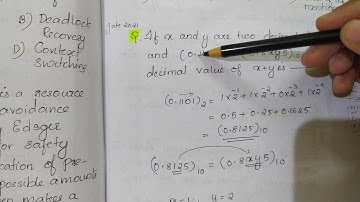 B) Deadlock
Recovery
D) Context
switching
is a resource
avoidance
safety
cation of pre-
possible amounts
makes a
gate 2021
Q. If x and y are two deci
and (0.
decimal value of x+y is
(0.1101)₂ = 1×2⁻¹ + 1×2⁻² + 0×2⁻³ + 1×2⁻⁴
= 0.5 + 0.25 + 0.0625
= (0.8125)₁₀
(0.8125)₁₀ = (0.8xy5)₁₀
y = 2